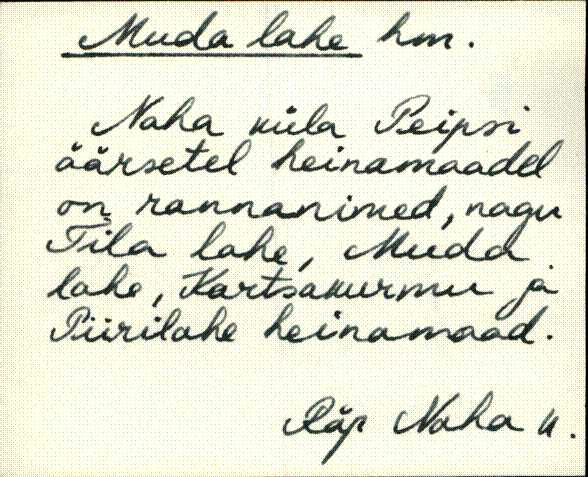 Muda lahe hm.
Naha küla Peipsi
äärsetel heinamaadel
on rannanimed, nagu
Tila lahe, Muda
lahe, Kartsakurmu ja
Piirilahe heinamaad.
Räp Naha k.